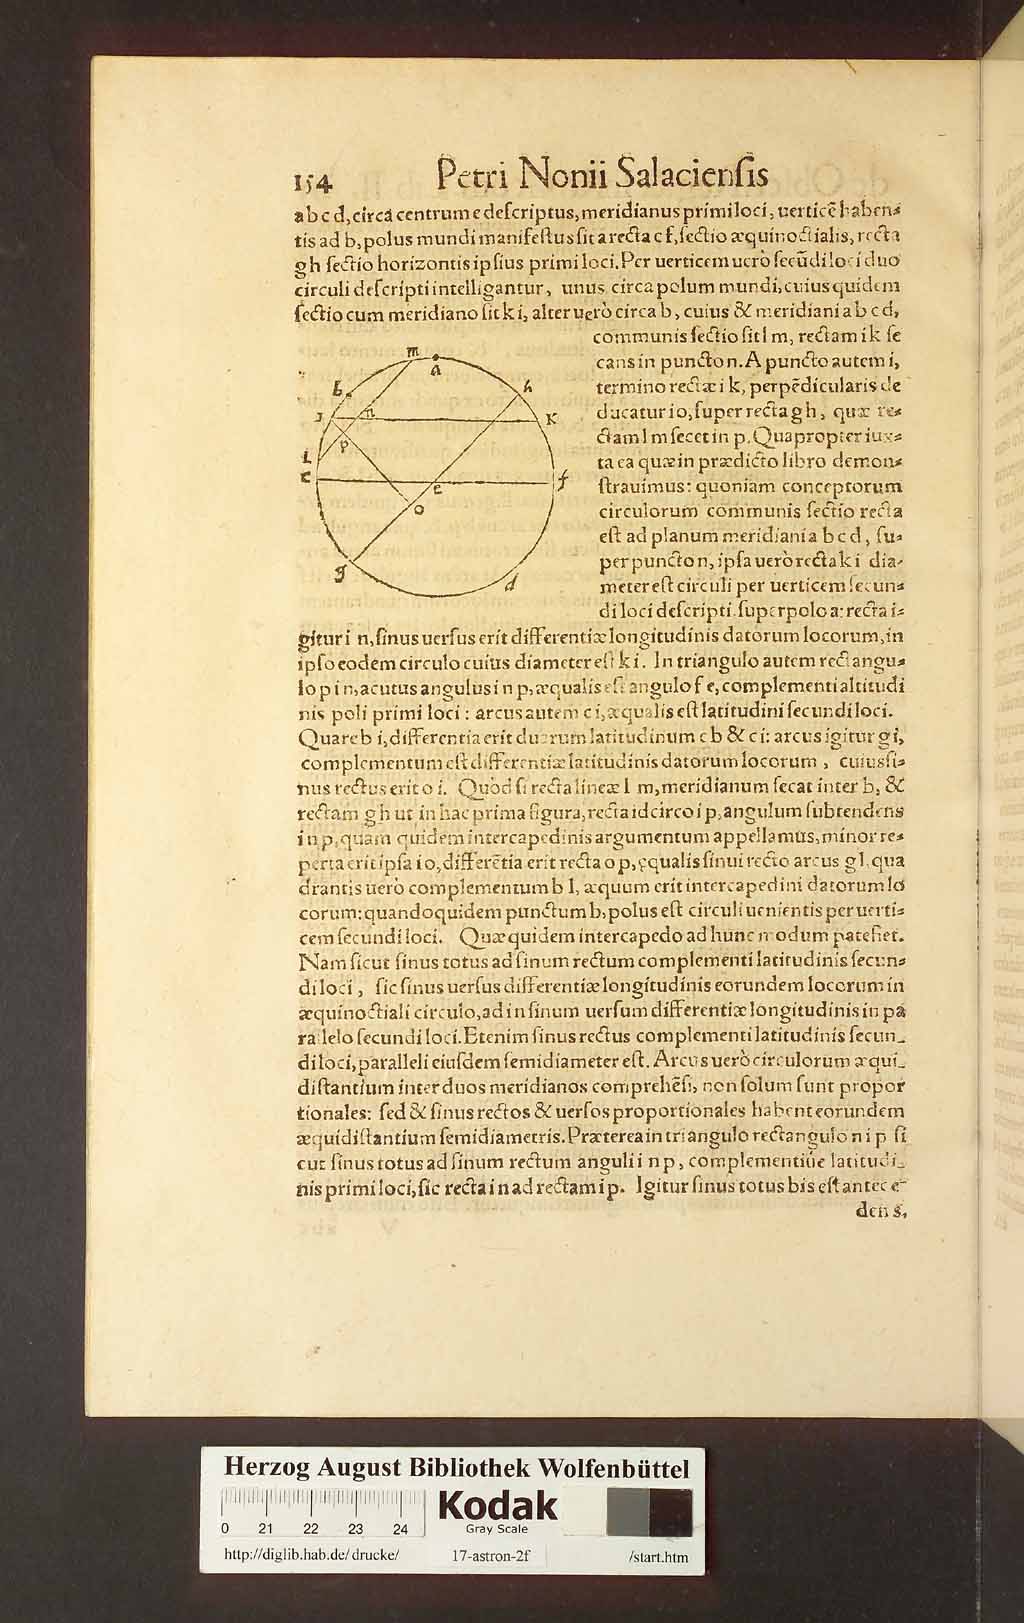 154 Petri Nonii Salaciensis
a b c d, circa centrum e descriptus, meridianus primi loci, uerticẽ haben⸗
tis ad b, polus mundi manifestus sit a recta c f, sectio æquinoctialis, recta
g h sectio horizontis ipsius primi loci. Per uerticem uerò secũdi loci duo
circuli descripti intelligantur, unus circa polum mundi, cuius quidem
sectio cum meridiano sit k i, alter uerò circa b, cuius & meridiani a b c d,
communis sectio sit l m, rectam i k se
cans in puncto n. A puncto autem i,
termino rectæ i k, perpẽdicularis de
ducatur i o, super recta g h, quæ re⸗
ctam l m secet in p. Quapropter iux⸗
ta ea quæ in prædicto libro demon⸗
strauimus: quoniam conceptorum
circulorum communis sectio recta
est ad planum meridiani a b c d, su⸗
per puncto n, ipsa uerò recta k i dia⸗
meter est circuli per uerticem secun⸗
di loci descripti super polo a: recta i⸗
m
a
b
h
i
n
K
p
l
c
e
f
o
g
d
gitur i n, sinus uersus erit differentiæ longitudinis datorum locorum, in
ipso eodem circulo cuius diameter est k i. In triangulo autem rectangu⸗
lo p i n, acutus angulus i n p, æqualis est angulo f e, complementi altitudi
nis poli primi loci: arcus autem c i, æqualis est latitudini secundi loci.
Quare b i, differentia erit duarum latitudinum c b & c i: arcus igitur g i,
complementum est differentiæ latitudinis datorum locorum, cuius si⸗
nus rectus erit o i. Quòd si recta lineæ l m, meridianum secat inter b, &
rectam g h ut in hac prima figura, recta idcirco i p, angulum subtendens
i n p, quam quidem intercapedinis argumentum appellamus, minor re⸗
perta erit ipsa i o, differẽtia erit recta o p, ęqualis sinui recto arcus g l, qua
drantis uerò complementum b l, æquum erit intercapedini datorum lo
corum: quandoquidem punctum b, polus est circuli uenientis per uerti⸗
cem secundi loci. Quæ quidem intercapedo ad hunc modum patefiet.
Nam sicut sinus totus ad sinum rectum complementi latitudinis secun⸗
di loci, sic sinus uersus differentiæ longitudinis eorundem locorum in
æquinoctiali circulo, ad in sinum uersum differentiæ longitudinis in pa
rallelo secundi loci. Etenim sinus rectus complementi latitudinis secun_
di loci, paralleli eiusdem semidiameter est. Arcus uerò circulorum æqui_
distantium inter duos meridianos comprehẽsi, non solum sunt propor
tionales: sed & sinus rectos & uersos proportionales habent eorundem
æquidistantium semidiametris. Præterea in triangulo rectangulo n i p si
cut sinus totus ad sinum rectum anguli i n p, complementiũe latitudi_
nis primi loci, sic recta i n ad rectam i p. Igitur sinus totus bis est antece⸗
dens,
Herzog August Bibliothek Wolfenbüttel
0 21 22 23 24
Kodak
Gray Scale
http://diglib.hab.de/drucke/ 17-astron-2f /start.htm